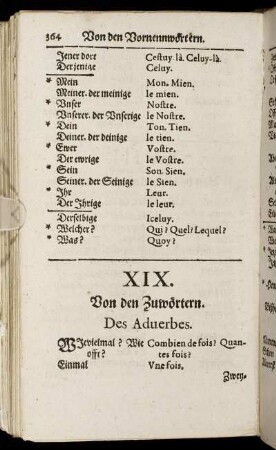 364 Von den Vornennwörtern.
Jener dort Cestuy-là. Celuy-là.
Der jenige Celuy.
* Mein Mon. Mien.
Meiner. der meinige le mien.
* Vnser Nostre.
Vnserer. der Vnserige le Nostre.
* Dein Ton. Tien.
Deiner. der deinige le tien.
* Ewer Vostre.
Der ewrige le Vostre.
* Sein Son. Sien.
Seiner. der Seinige le Sien.
* Ihr Leur.
Der Ihrige le leur.
Derselbige Iceluy.
* Welcher? Qui? Quel? Lequel?
* Was? Quoy?
XIX.
Von den Zuwörtern.
Des Aduerbes.
WJevielmal? Wie Combien de fois? Quan-
offt? tes fois?
Einmal Vne fois.
Zwey-